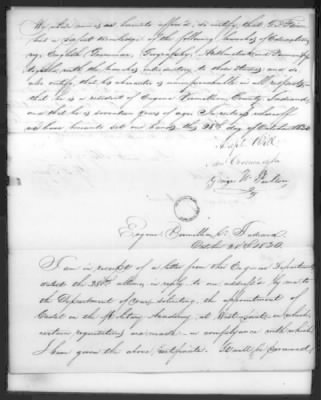 We whose names are hereunto affixed, do certify that
has a perfect knowledge of the following branches of Education
viz, English Grammar, Geography, Arithmetic and Penmanship
together with the branches introductory to these studies; and we
also certify, that his character is unimpeachable in all respects,
that he is a resident of Eugene Vermillion County, Indiana,
and that he is seventeen years of age. In witness whereof
we have hereunto set our hands, this 28th day of October 1830
George W.
Eugene Vermillion Co. Indiana
October 28th 1830.
I am in receipt of a letter from the Engineer Department
dated the 28th ultimo, in reply to one addressed by me to
the Department of War soliciting the appointment of
Cadet in the Military Academy at West-Point, in which
certain requisitions are made - in compliance with which
I have given the above certificate. It will be perceived,